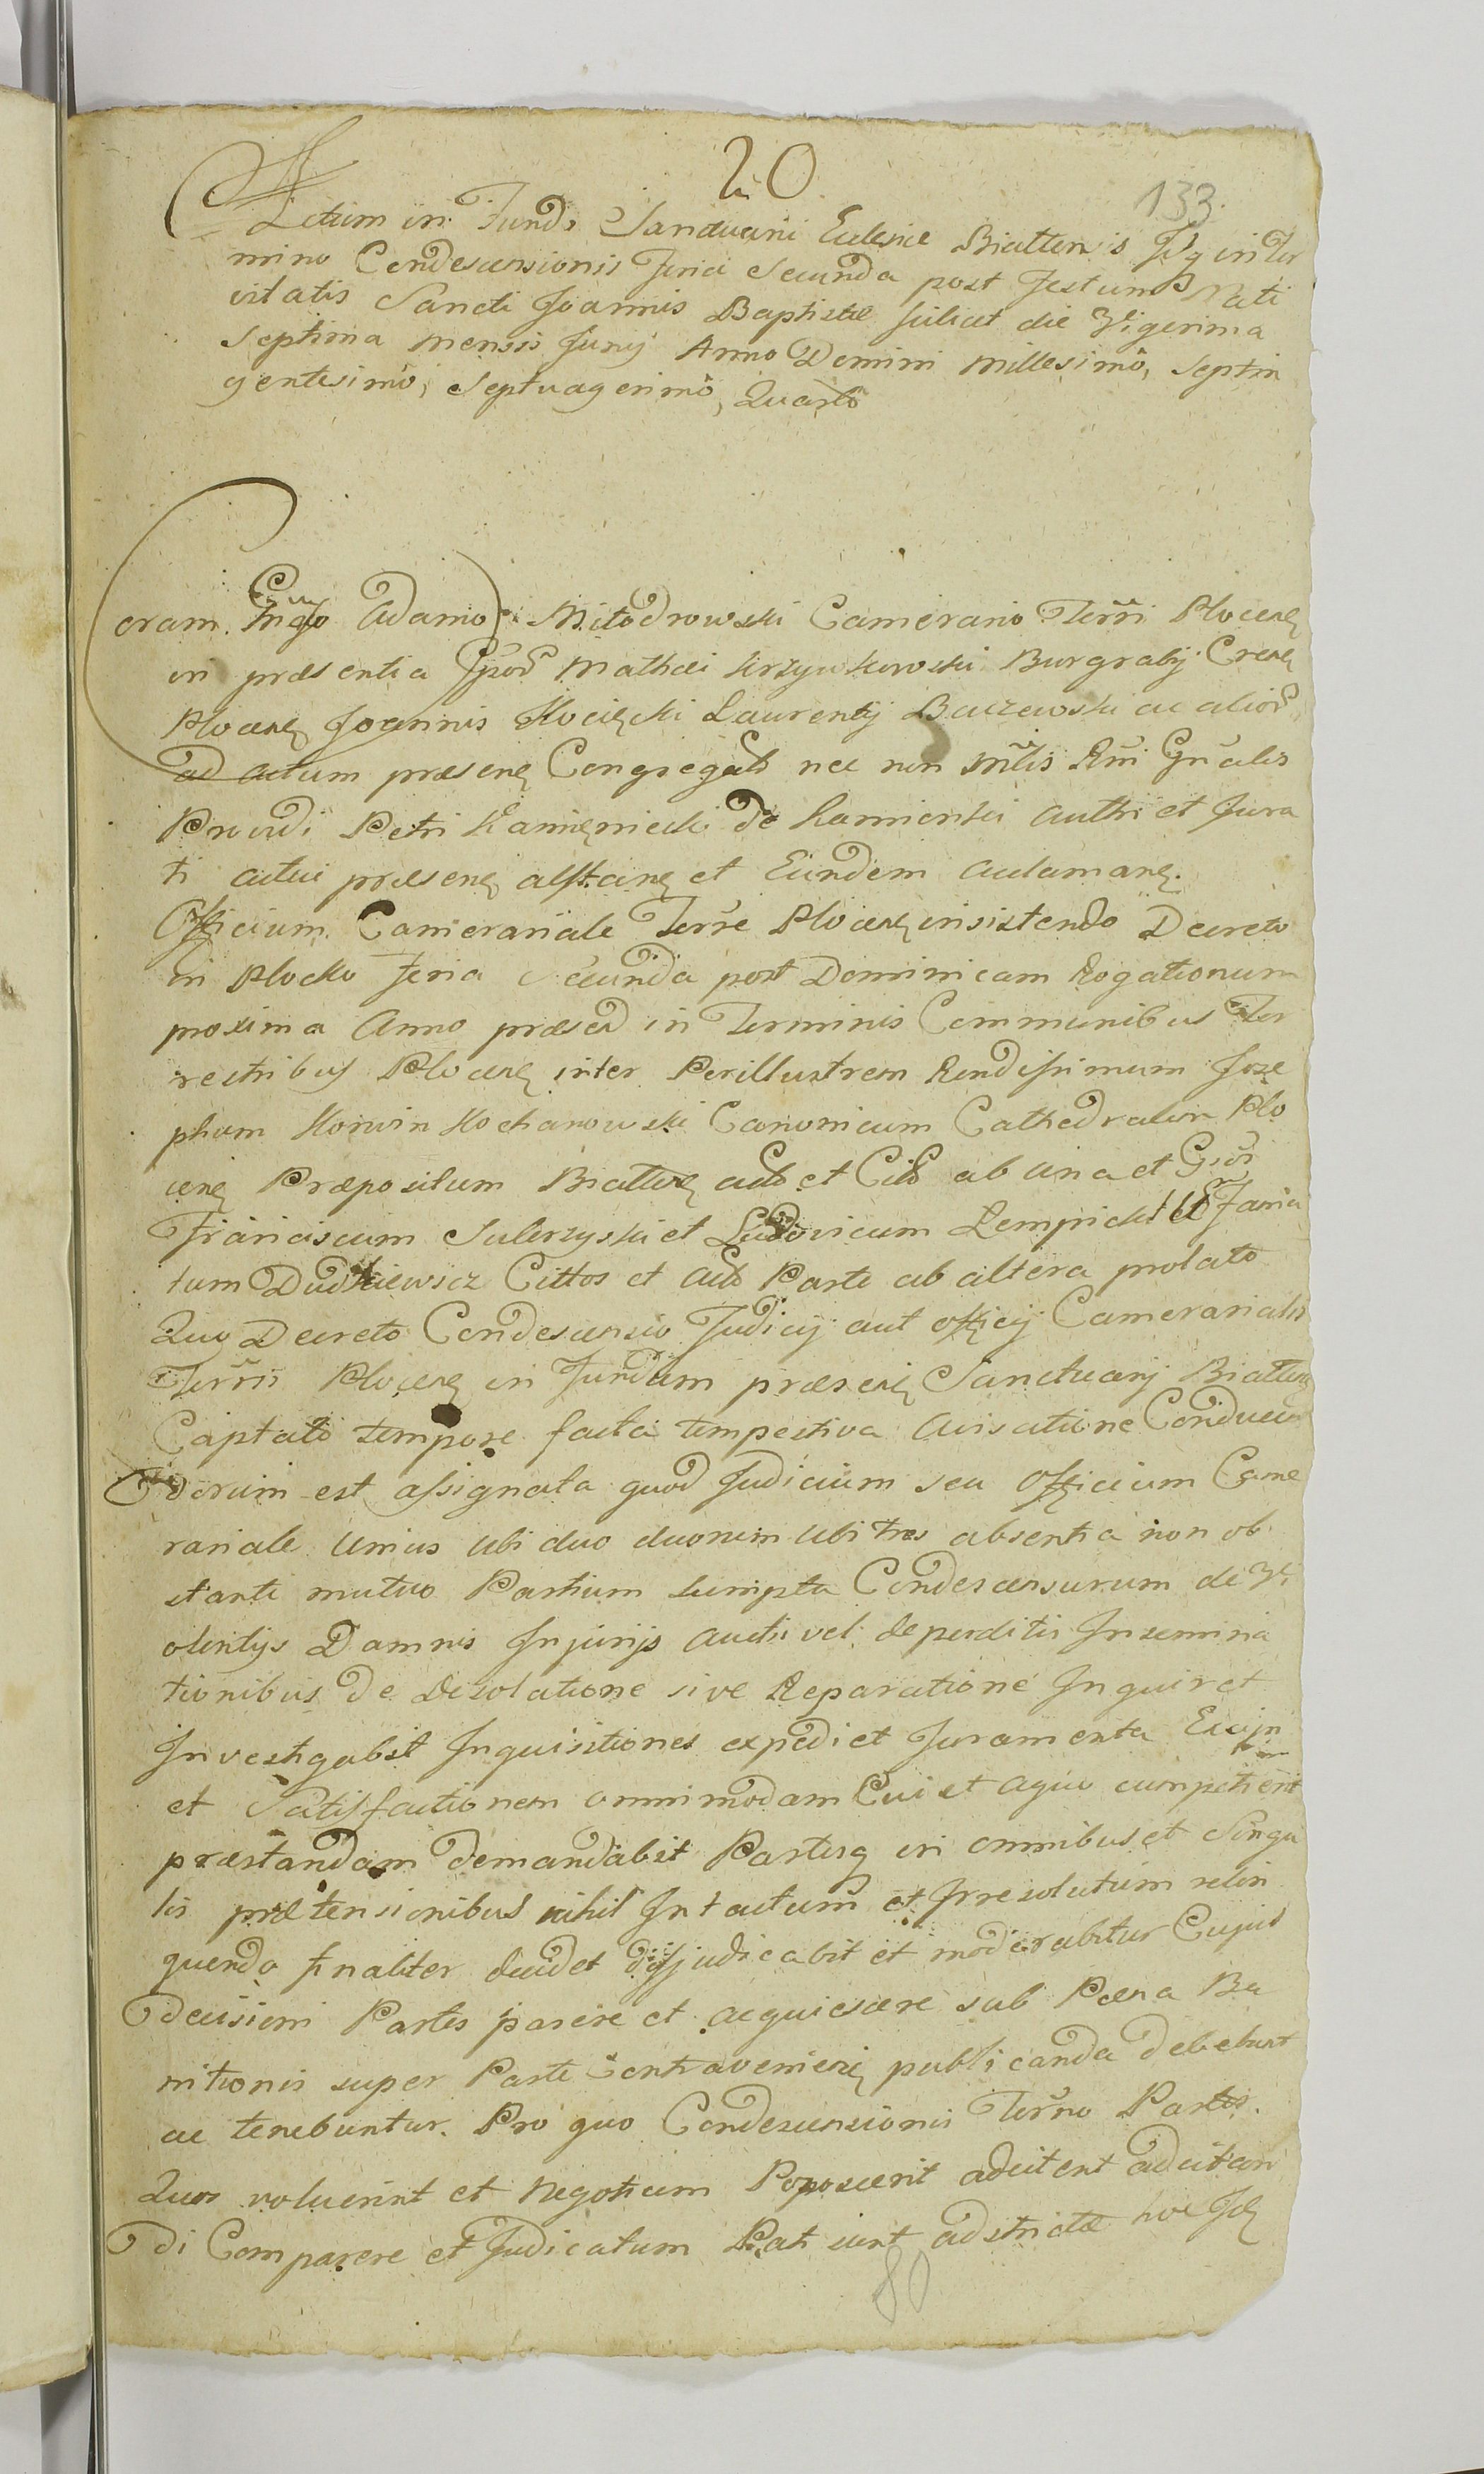 20
133.
Actum in Fundo Sanctuarii Eclesiæ Biatten's in Ter
mino Condescensionis Feria Secunda post Festum Nati
vitatis Sancti Joannis Baptistæ scilicet die Vigesima
Septima mensis Junij Anno Domini millesimô, Septin
gentesimô, Septuagesimô, Quarto
Coram Adamo Mitodrowski Camerario Terrı Plocenę
in præsentia Mathæi Krzywkowski Burgrabij Crenę
Plocenę Joannis Kociecki Laurentij Baczewski ac alior
ad actum præsenę Congregat nec non Mtlis Rni Gnalis
Providi Petri Kamięniecki de Kamienski Authri et Jura
ti actui præsenę asstanę et Eundem aclamanę.
Officium Camerariale Terre Plocenę insistendo Decreto
in Plocko Feria Secunda post Dominicam Rogationum
proxima Anno præsen in Terminis Communibus Ter
restribus Plocenę inter Perillustrem Rendissimum Jose
phum Korwin Kochanowski Canonicum Cathedralem Plo
cenę Præpositum Biattenę acto et Citt ab una et Gsor
Franciscum Sulerzyski et Ludovicum Lempicki et Fama
tum Dudkiewicz Cittos et acto Parte ab altera prolato
Quo Decreto Condescensio Judicij aut officij Camerarialis
Terrı Plocenę in Fundum præsenę Sanctuarij Biattenę
Captato tempore facta tempestiva avisatione Conducto
rum est assignata quod Judicium seu Officium Came
rariale unius ubi duo duorum ubi tres absentia non ob
stante mutuo Partium sumptu Condescensurum de Vi
olentijs Damnis Injurijs Auctis vel deperditis Insemina
tionibus de Desolatione sive Reparatione Inquiret
Investigabit Inquisitiones expediet Juramenta
et Satisfactionem omnimodam Cui et a quo competierit
præstandam demandabit Partesq in omnibus et Singu
lis prætensionibus nihil Intactum et Irresolutum relin
quendo finaliter decidet dijudicabit et moderabitur Cujus
decisioni Partes parere et acquiescere sub Pæna Ba
nitionis super Parte Contravenienę publicanda debebunt
ac tenebuntur. Pro quo Condescensionis Terno Partes
Quos voluerint et negotium Poposcerit adcitent adcitan
di Comparere et Judicatum Pati sunt adstrictæ hoc
80